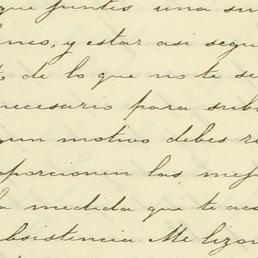 que juntes una su
inco, y estar asi segu
de lo que no te se
necesario para subs
gun motivo debes re
oporcionen las mej
la medida que te aco
ubsistencia. Me lizon